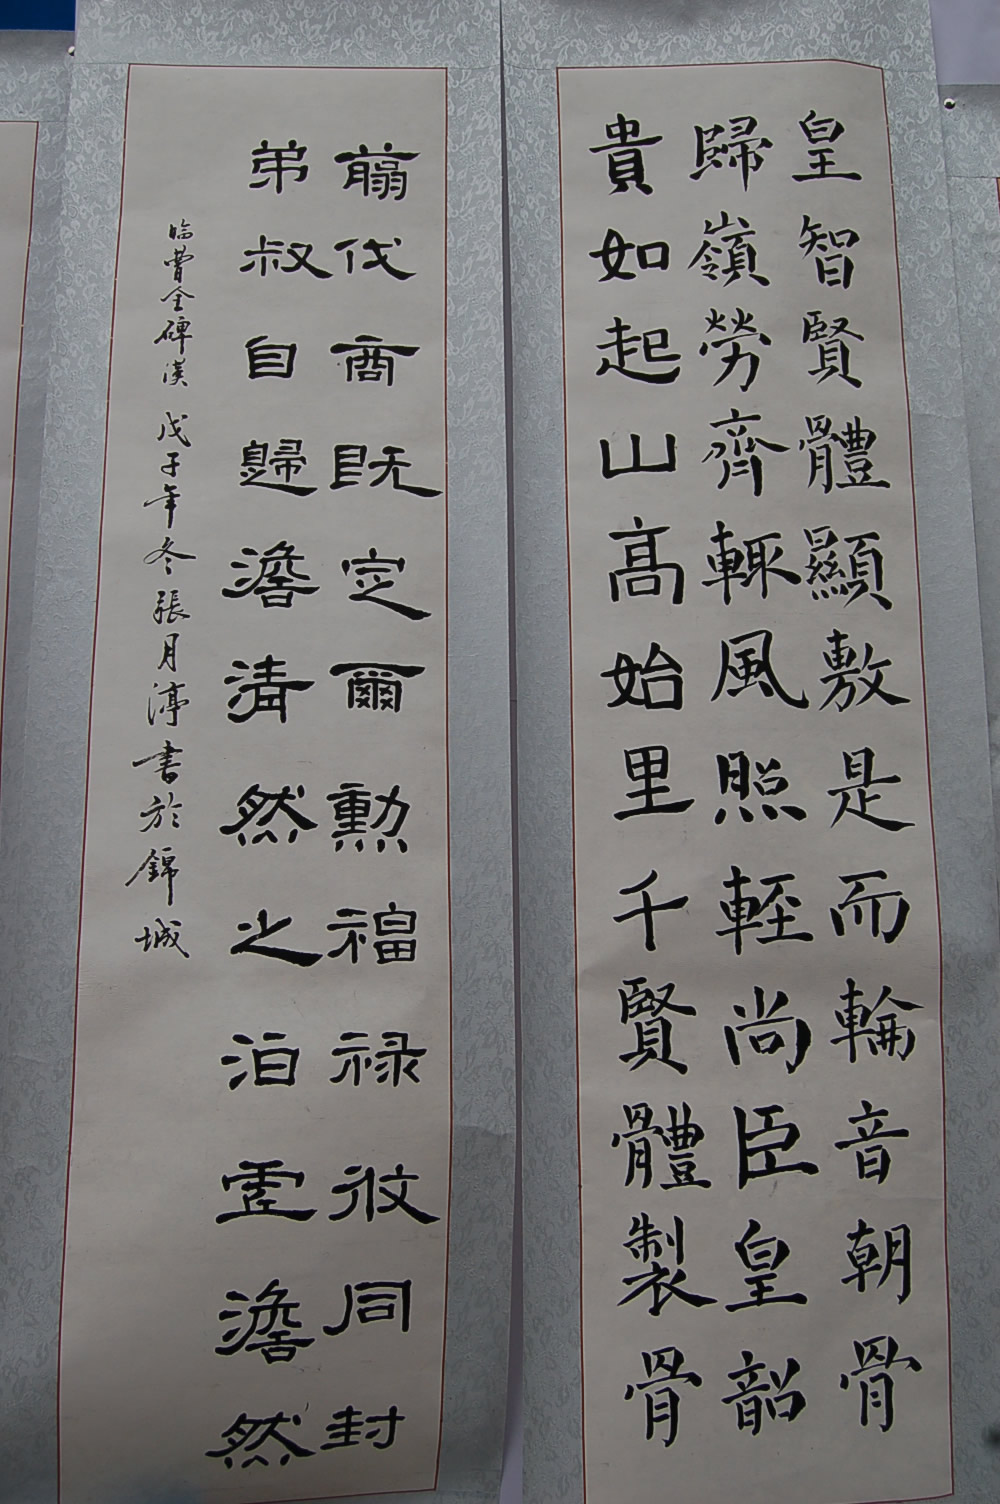 皇智賢體顯敷是而輪音朝骨
歸嶺勞齊輙風照輕尚臣皇韶
貴如起山高始里千賢體製骨
翦伐商既定爾勲福禄攸同封
弟叔自歸澹清然之泊虛澹然
臨曹全碑漢戊子年冬張月渟書於錦城